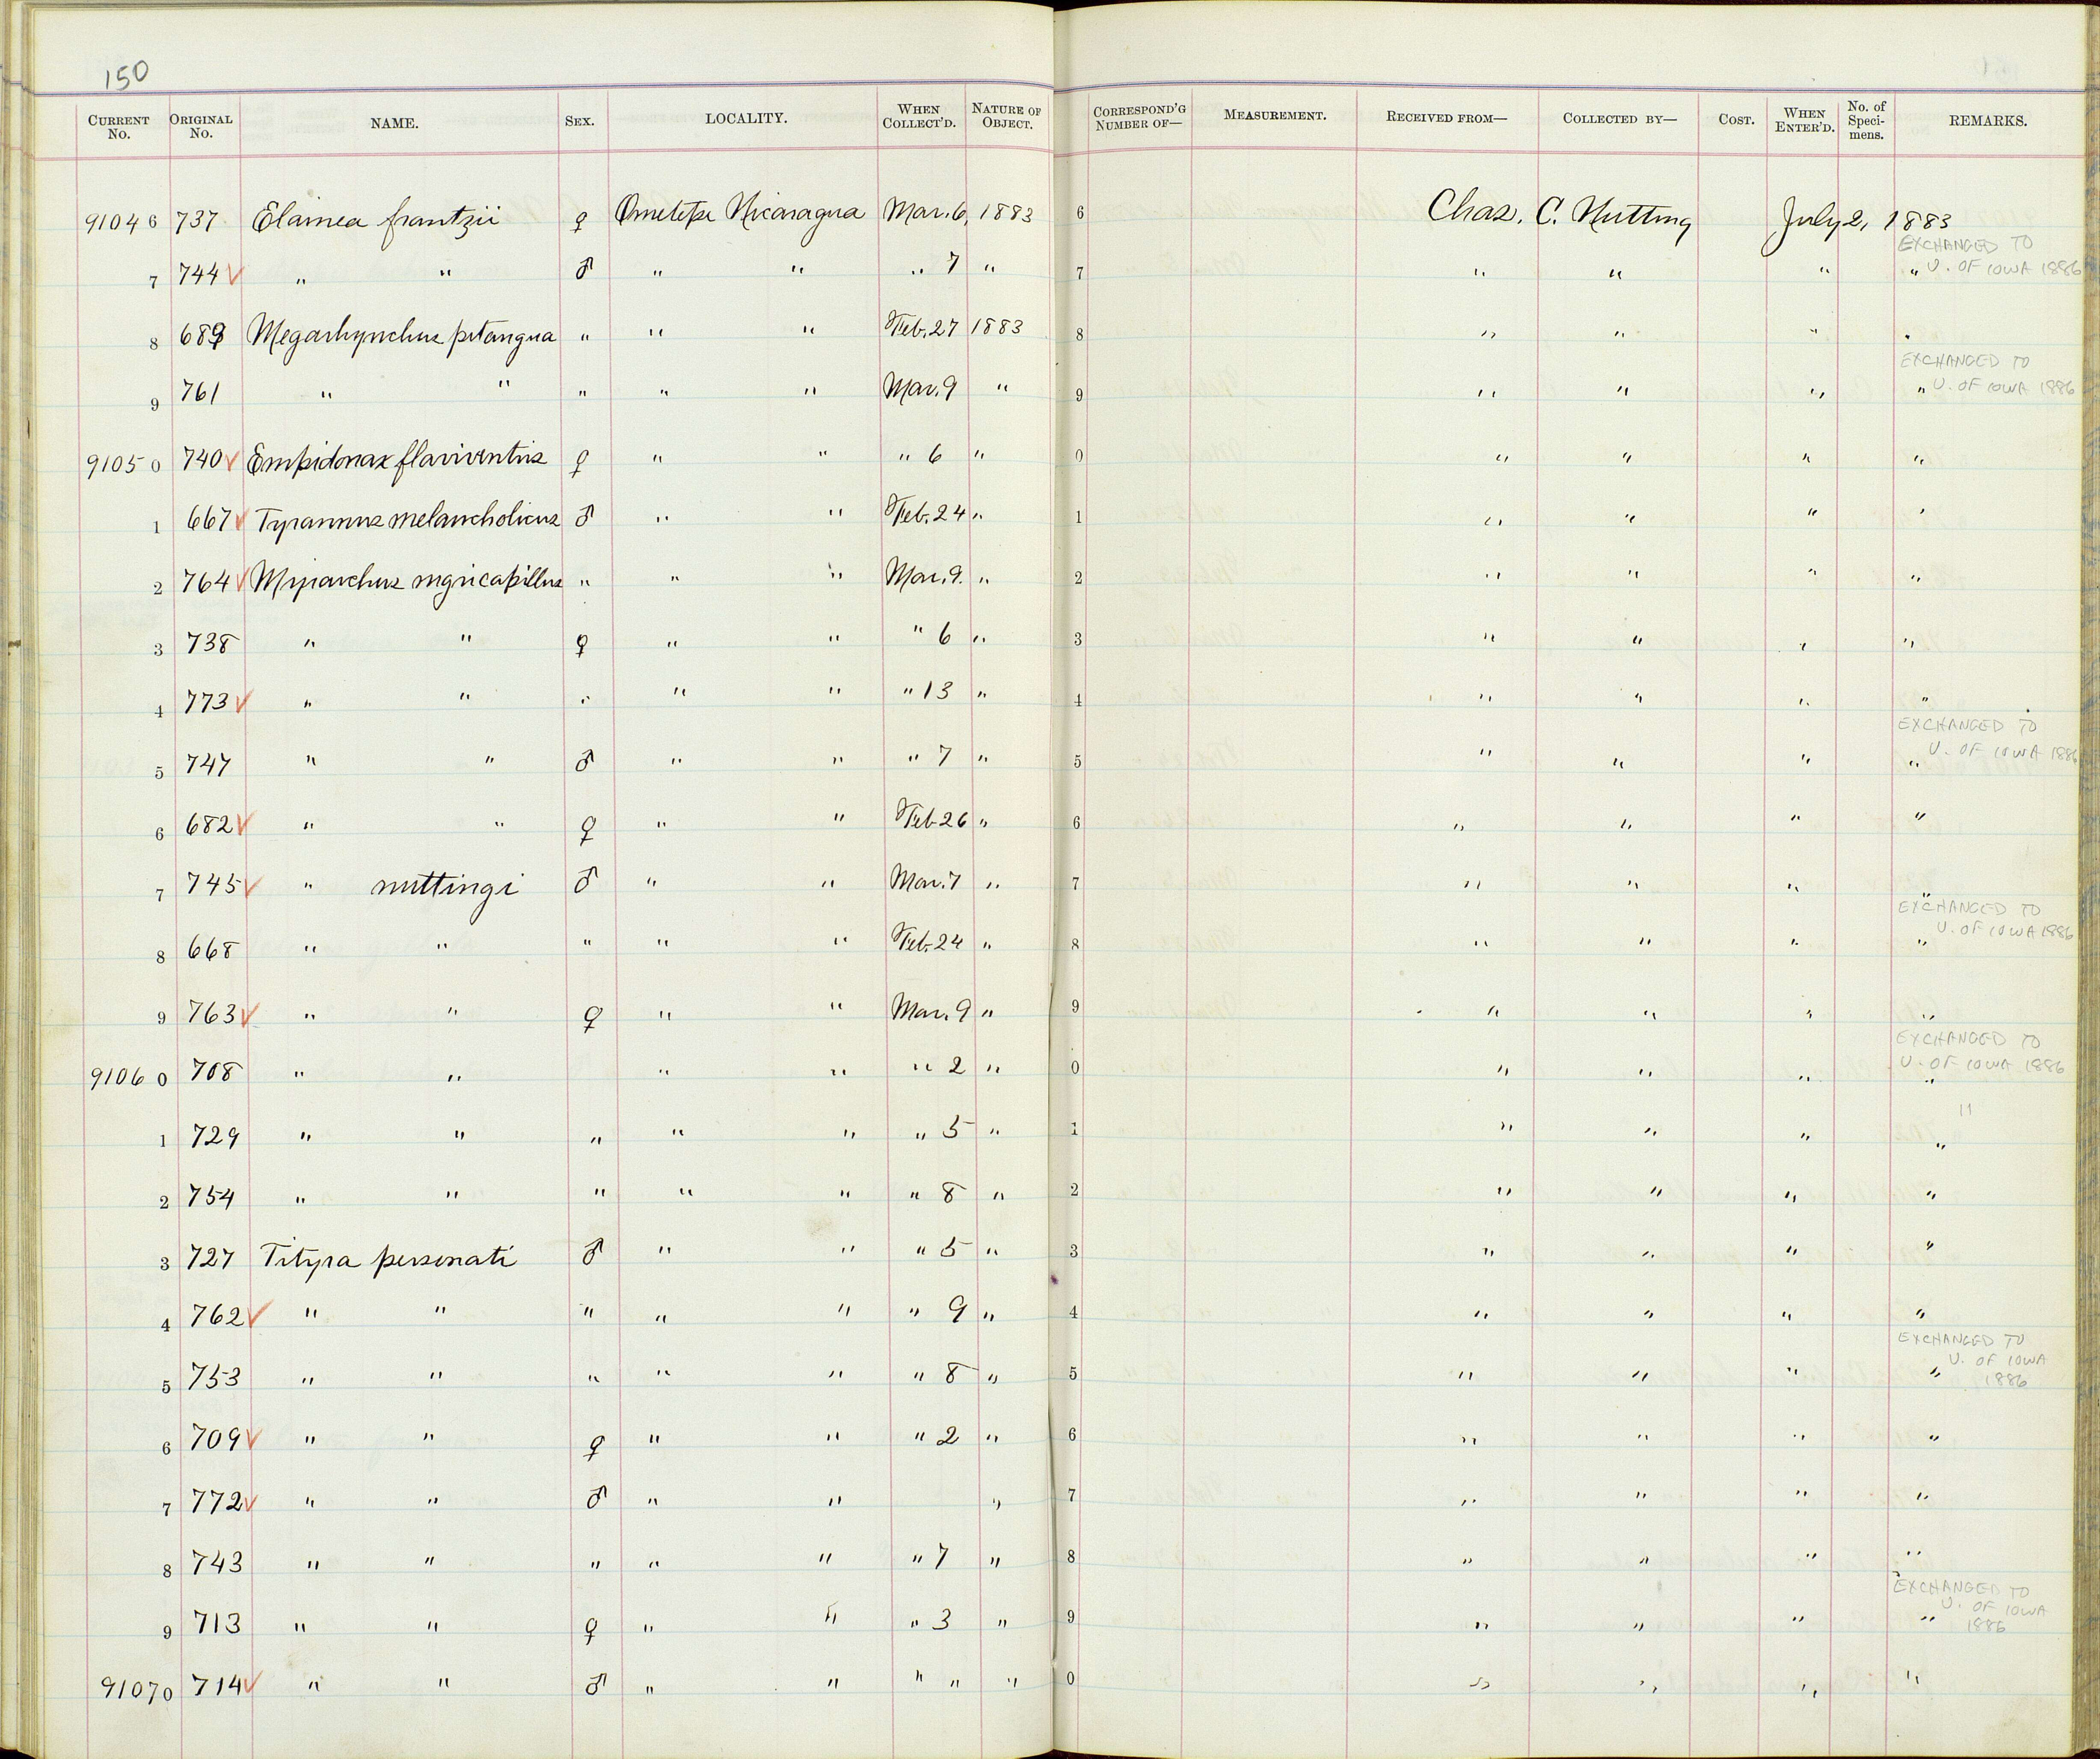 150
CURRENT No. ORIGINAL No. NAME. SEX. LOCALITY. WHEN COLLECT'D. NATURE OF OBJECT. CORRESPOND'G NUMBER OF— MEASUREMENT. RECEIVED FROM— COLLECTED BY— COST. WHEN ENTER'D. No. of Speci-mens. REMARKS.
91046 737 Elainea frantzii ♀ Ometepe Nicaragua Mar. 6, 1883 6 Chas. C. Nutting July 2, 1883
7 744 ✓ " " ♂ " " " 7 " 7 " " " " EXCHANGED TO U. OF IOWA 1886
8 689 Megarhynchus pitangua " " " Feb. 27 1883 8 " " " "
9 761 " " " " " Mar. 9 " 9 " " " " EXCHANGED TO U. OF IOWA 1886
91050 740 ✓ Empidonax flaviventris ♀ " " " 6 " 0 " " " "
1 667 ✓ Tyrannus melancholicus ♂ " " Feb. 24 " 1 " " " "
2 764 ✓ Myiarchus nigricapillus " " " Mar. 9. " 2 " " " "
3 738 " " ♀ " " " 6 " 3 " " " "
4 773 ✓ " " " " " " 13 " 4 " " " "
5 747 " " ♂ " " " 7 " 5 " " " " EXCHANGED TO U. OF IOWA 1886
6 682 ✓ " " ♀ " " Feb 26 " 6 " " " "
7 745 ✓ " nuttingi ♂ " " Mar. 7 " 7 " " " "
8 668 " " " " " Feb. 24 " 8 " " " " EXCHANGED TO U. OF IOWA 1886
9 763 ✓ " " ♀ " " Mar. 9 " 9 " " " "
91060 708 " " " " " 2 " 0 " " " " EXCHANGED TO U. OF IOWA 1886
1 729 " " " " " " 5 " 1 " " " " "
2 754 " " " " " " 8 " 2 " " " "
3 727 Tityra personati ♂ " " " 5 " 3 " " " "
4 762 ✓ " " " " " " 9 " 4 " " " "
5 753 " " " " " " 8 " 5 " " " " EXCHANGED TO U. OF IOWA 1886
6 709 ✓ " " ♀ " " " 2 " 6 " " " "
7 772 ✓ " " ♂ " " " 7 " " " "
8 743 " " " " " " 7 " 8 " " " "
9 713 " " ♀ " " " 3 " 9 " " " " EXCHANGED TO U. OF IOWA 1886
91070 714 ✓ " " ♂ " " " " " 0 " " " "